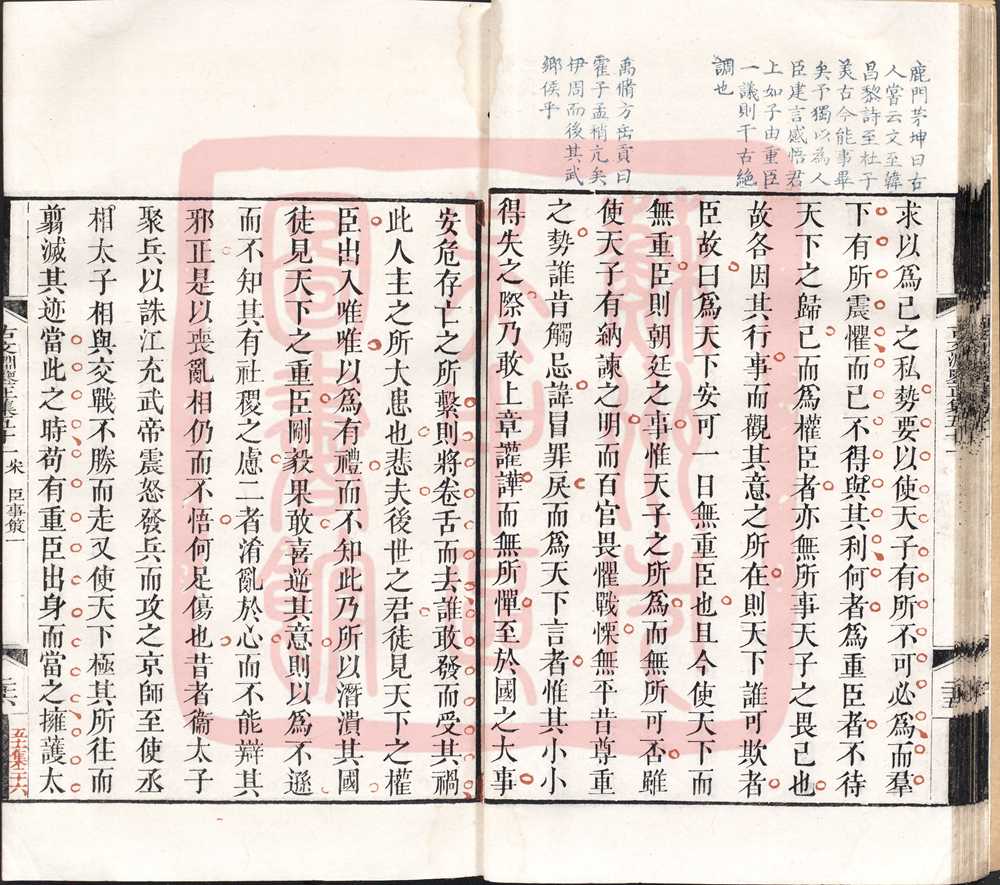 鹿門茅坤曰右
人嘗云文至韓
昌黎詩至杜子
美古今能事畢
矣予獨以為人
臣建言感悟君
上如子由重臣
一議則千古絕
調也
禹脩方岳貢曰
霍子孟稍亢矣
伊周而後其武
鄉侯乎
求以爲己之私勢要以使天子有所不可必爲而羣
下有所震懼而已不得與其利何者爲重臣者不待
天下之歸己而爲權臣者亦無所事天子之畏己也
故各因其行事而觀其意之所在則天下誰可欺者
臣故曰爲天下安可一日無重臣也且今使天下而
無重臣則朝廷之事惟天子之所爲而無所可否雖
使天子有納諫之明而百官畏懼戰慄無平昔尊重
之勢誰肯觸忌諱冒罪戾而爲天下言者惟其小小
得失之際乃敢上章讙譁而無所憚至於國之大事
安危存亡之所繫則將卷舌而去誰敢發而受其禍
此人主之所大患也悲夫後世之君徒見天下之權
臣出入唯唯以爲有禮而不知此乃所以潛潰其國
徒見天下之重臣剛毅果敢喜逆其意則以爲不遜
而不知其有社稷之慮二者淆亂於心而不能辯其
邪正是以喪亂相仍而不悟何足傷也昔者衞太子
聚兵以誅江充武帝震怒發兵而攻之京師至使丞
相太子相與交戰不勝而走又使天下極其所往而
翦滅其迹當此之時苟有重臣出身而當之擁護太
臣事策